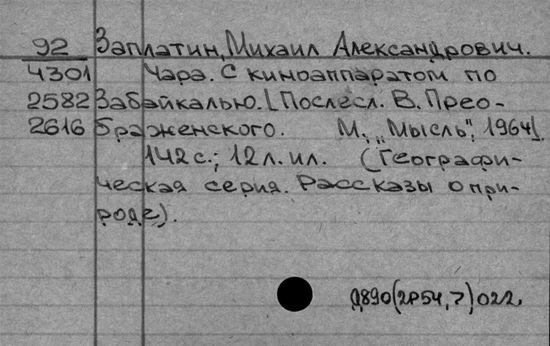 92 Заплатин, Михаил Александрович.
4301 Чара. С киноаппаратом по
2582 Забайкалью. [Послесл. В. Прео-
2616 браженского. М., "Мысль", 1964].
142 с.; 12 л. ил. (Географи-
ческая серия. Рассказы о при-
роде).
Д890(2Р54,7)022.